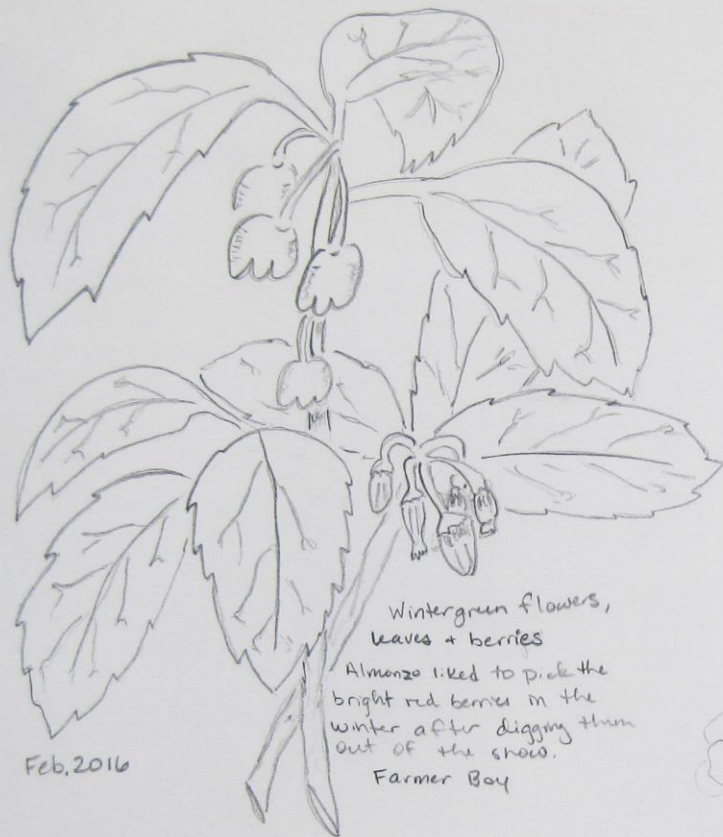 Wintergreen flowers,
leaves + berries
Almonzo liked to pick the
bright red berries in the
winter after digging them
out of the snow.
Farmer Boy
Feb, 2016